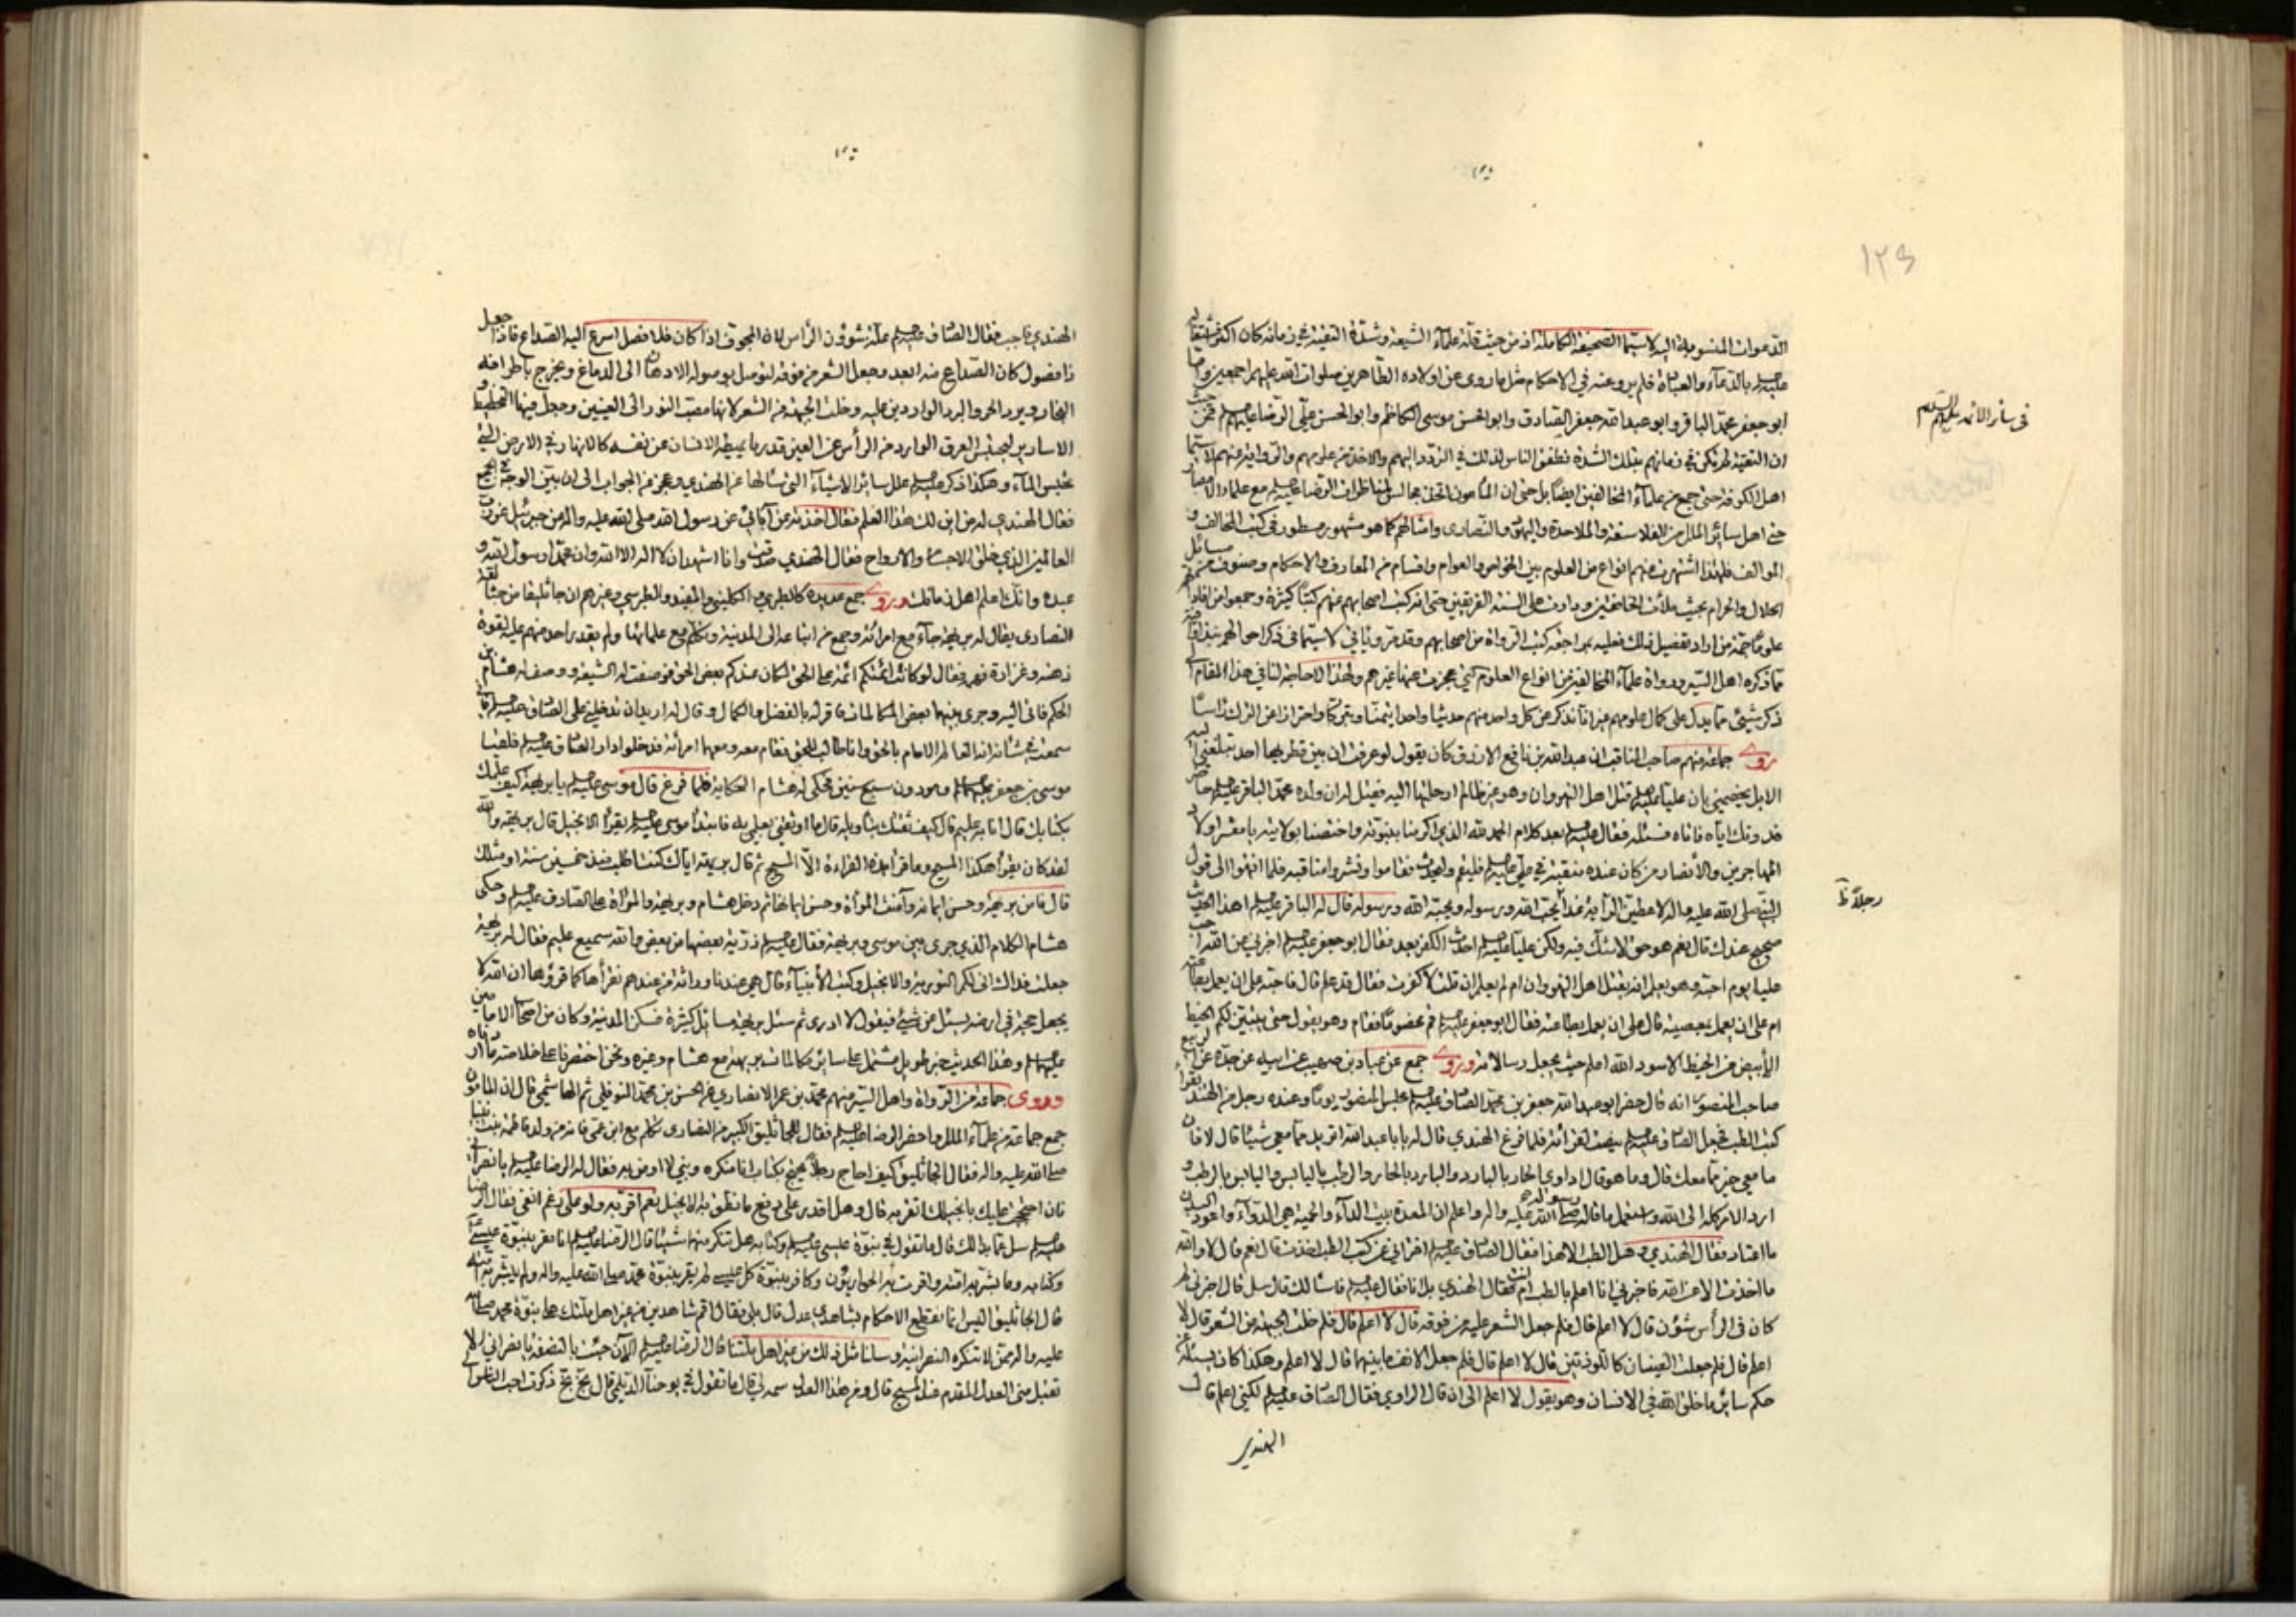 ١٢٥
في سائر الائمة عليهم السلام
الدعوات المنسوبة اليه لاسيما الصحيفة الكاملة اذ من حيث قلة علماء الشيعة وشدة التقية في زمانه كان اكثر
عليه السلام بالدعاء والعبادة فلم يرو عنه في الاحكام مثل ما روى عن اولاده الطاهرين صلوات الله عليهم اجمعين
ابو جعفر محمد الباقر وابو عبد الله جعفر الصادق وابو الحسن موسى الكاظم وابو الحسن علي الرضا عليهم السلام فمن حيث
ان التقية لم تكن في زمانهم بتلك الشدة الناس لذلك في التردد اليهم والاخذ من علومهم لاسيما
اهل الكوفة حتى جمع من علماء المخالفين ايضا بل حتى ان المأمون لمناظرات الرضا عليه السلام مع علماء
حتى اهل سائر الملل من الفلاسفة والملاحدة واليهود والنصارى وامثالهم كما هو مشهور مسطور في كتب المخالف و
الموالف فلهذا اشتهرت عنهم انواع من العلوم بين الخواص والعوام واقسام من المعارف والاحكام وصنوف من مسائل
الحلال والحرام بحيث ملأت الخافقين ودارت على السنة الفريقين حتى انه كتب اصحابهم عنهم كتبا كثيرة وجمعوا من
علوما جمة من اراد تفصيل ذلك فعليه بمراجعة كتب الرواة من اصحابهم وقد مر ويأتي لاسيما في ذكر احوالهم نبذ
مما ذكره اهل السير ورواة علماء المخالفين من انواع العلوم التي عجزت عنها غيرهم ولهذا لا حاجة لنا في هذا المقام
ذكر شيئ مما يدل على كمال علومهم غير انا نذكر عن كل واحد منهم حديثا واحدا تيمنا وتبركا واحترازا عن الترك راسا
روى جماعة منهم صاحب المناقب ان عبد الله بن نافع الازرق كان يقول لو عرفت ان بين قطريها احد تبلغني اليه
الابل يخصمني بان عليا عليه السلام قتل اهل النهروان وهو غير ظالم لرحلتها اليه فقيل له ائت ولده محمد الباقر عليه السلام
فاتاه فسئله فقال عليه السلام بعد كلام الحمد لله الذي اكرمنا بنبوته واختصنا بولايته يا معشر اولاد
المهاجرين والانصار من كان عنده منقبة في علي عليه السلام فليقم وليحدث فقاموا ونشروا مناقبه فلما انتهوا الى قول
رجلا
النبي صلى الله عليه واله لاعطين الراية غدا يحب الله ورسوله ويحبه الله ورسوله قال له الباقر عليه السلام اهذا الحديث
صحيح عندك قال نعم هو حق لاشك فيه ولكن عليا عليه السلام احدث الكفر بعد فقال ابو جعفر عليه السلام اخبرني عن الله احب
عليا يوم احبه وهو يعلم انه يقتل اهل النهروان ام لم يعلم ان قلت لا كفرت فقال قد علم قال فاحبه على ان يعمل بطاعته
ام على ان يعمل بمعصيته قال على ان يعمل بطاعته فقال ابو جعفر عليه السلام قم مخصوما فقام وهو يقول حتى يتبين لكم الخيط
الأبيض من الخيط الاسود الله اعلم حيث يجعل رسالاته وروى جمع عن عباد بن صهيب عن ابيه عن جده عن الربيع
صاحب المنصور انه قال حضر ابو عبد الله جعفر بن محمد الصادق عليه السلام مجلس المنصور يوما وعنده رجل من الهند يقرأ
كتب الطب فجعل الصادق عليه السلام ينصت لقرائته فلما فرغ الهندي قال له يا ابا عبد الله اتريد مما معي شيئا قال لا فان
ما معي خير مما معك قال وما هو قال اداوي الحار بالبارد والبارد بالحار والرطب باليابس واليابس بالرطب و
ارد الامر كله الى الله واستعمل ما قاله رسوله صلى الله عليه واله واعلم ان المعدة بيت الداء والحمية هي الدواء واعود البدن
ما اعتاد فقال الهندي وهل الطب الا هذا فقال الصادق عليه السلام افتراني عن كتب الطب اخذت قال نعم قال لا والله
ما اخذت الا عن الله فاخبرني انا اعلم بالطب ام انت فقال الهندي بل انا فقال عليه السلام فاسألك قال سل قال اخبرني لم
كان في الرأس شؤن قال لا اعلم قال فلم جعل الشعر عليه من فوقه قال لا اعلم قال فلم خلت الجبهة من الشعر قال لا
اعلم قال فلم جعلت العينان كاللوزتين قال لا اعلم قال فلم جعل الانف ما بينهما قال لا اعلم وهكذا كان يسئله عن
حكم سائر ما خلق الله في الانسان وهو يقول لا اعلم الى ان قال الراوي فقال الصادق عليه السلام لكني اعلم قال
الهندي
الهندي فاجب فقال الصادق عليه السلام علة شؤون الرأس لان المجوف اذا كان فلا فصل اسرع اليه الصداع فاذا جعل
ذا فصول كان الصداع منه ابعد وجعل الشعر من فوقه لتوصل بوصوله الادهان الى الدماغ ويخرج باطرافه
البخار ويرد الحر والبرد الواردين عليه وخلت الجبهة من الشعر لانها مصب النور الى العينين وجعل فيها التخطيط و
الاسارير ليحتبس العرق الوارد من الرأس عن العين قدر ما يميطه الانسان عن نفسه كالانهار في الارض التي
تحبس الماء وهكذا ذكر عليه السلام علل سائر الاشياء التي سألها عن الهندي وعجز من الجواب الى ان بين الوجه في الجميع
فقال الهندي له من اين لك هذا العلم فقال اخذته عن آبائي عن رسول الله صلى الله عليه واله عن جبرئيل عن رب
العالمين الذي خلق الاجسام والارواح فقال الهندي صدقت وانا اشهد ان لا اله الا الله وان محمدا رسول الله و
عبده وانك اعلم اهل زمانك وروى جمع عديدة كالطبري والكليني والمفيد والطبرسي وغيرهم ان جاثليقا من جثالقة
النصارى يقال له بريهة جاء مع امرأته وجمع من اتباعه الى المدينة وتكلم مع علمائها ولم يقدر احد منهم عليه لقوة
ذهنه وغزارة فهمه فقال لو كانت ائمتكم ائمة على الحق لكان عندكم بعض الحق فوصفت له الشيعة ووصف له هشام بن
الحكم فاتى اليه وجرى بينهما بعض المكالمات فاقر له بالفضل والكمال وقال له اريد ان تدخلني على الصادق عليه السلام
سمعت في شانه انه العالم الامام بالحق وانا طالب للحق فقام معه ومعهما امرأته فدخلوا دار الصادق عليه السلام فلقيا
موسى بن جعفر عليهما السلام وهو دون سبع سنين فحكى له هشام الحكاية فلما فرغ قال موسى عليه السلام يا بريهة كيف علمك
بكتابك قال انا به عليم قال كيف ثقتك بتأويله قال ما اوثقني بعلمي به فابتدأ موسى عليه السلام يقرأ الانجيل قال بريهة والله
لقد كان يقرأ هكذا المسيح وما قرأ هذه القراءة الا المسيح ثم قال بريهة اياك كنت اطلب منذ خمسين سنة او مثلك
قال فامن بريهة وحسن ايمانه وآمنت المرأة وحسن ايمانها ثم دخل هشام وبريهة والمرأة على الصادق عليه السلام وحكى
هشام الكلام الذي جرى بين موسى وبريهة فقال عليه السلام ذرية بعضها من بعض والله سميع عليم فقال له بريهة
جعلت فداك انى لكم التورية والانجيل وكتب الأنبياء قال هي عندنا وراثة من عندهم نقرأها كما قرؤها ان الله لا
يجعل حجة في ارضه يسئل عن شيئ فيقول لا ادري ثم سئل بريهة مسائل كثيرة فسكن المدينة وكان من اصحاب الامامين
عليهما السلام وهذا الحديث خبر طويل مشتمل على سائر مكالمات بريهة مع هشام وغيره ونحن اختصرنا على خلاصة ما اردناه
وروى جماعة من الرواة واهل السير منهم محمد بن عمر الانصاري عن الحسن بن محمد النوفلي ثم الهاشمي قال ان المأمون
جمع جماعة من علماء الملل واحضر الرضا عليه السلام فقال للجاثليق الكبير من النصارى تكلم مع ابن عمي فانه من ولد فاطمة بنت نبينا
صلى الله عليه واله فقال الجاثليق كيف احاج رجلا يحتج بكتاب انا منكره ونبي لا اومن به فقال له الرضا عليه السلام يا نصراني
فان احتججت عليك بانجيلك اتقر به قال وهل اقدر على دفع ما نطق به الانجيل نعم اقر به ولو على رغم انفي فقال الرضا
عليه السلام سل عما بدا لك قال ما تقول في نبوة عيسى عليه السلام وكتابه هل تنكر منهما شيئا قال الرضا عليه السلام انا مقر بنبوة عيسى
وكتابه وما بشر به امته واقرت به الحواريون وكافر بنبوة كل عيسى لم يقر بنبوة محمد صلى الله عليه واله ولم يبشر به امته
قال الجاثليق اليس انما تقطع الاحكام بشاهدي عدل قال بلى فقال اقم شاهدين من غير اهل ملتك على نبوة محمد صلى الله
عليه واله ممن لا تنكره النصرانية وسلنا مثل ذلك من غير اهل ملتنا قال الرضا عليه السلام الآن جئت بالنصفة يا نصراني الا
تقبل مني العدل المقدم عند المسيح قال ومن هذا العدل سمه لي قال ما تقول في يوحنا الديلمي قال بخ بخ ذكرت احب الناس